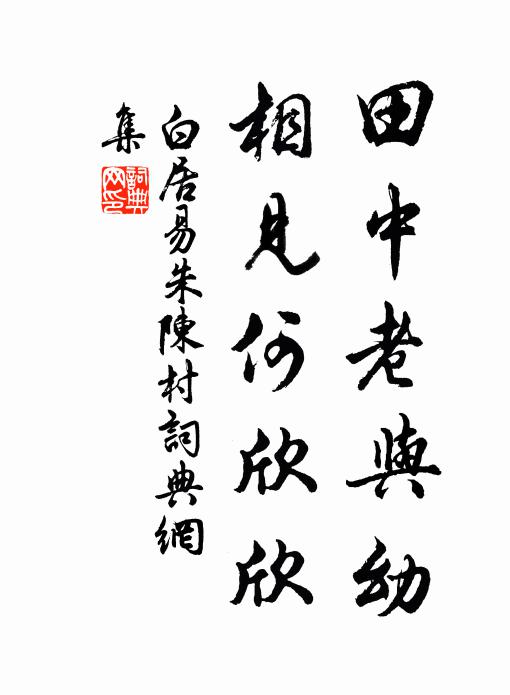 田中老與幼
相見何欣欣
白居易朱陳村詞典網
集
詞典
网印